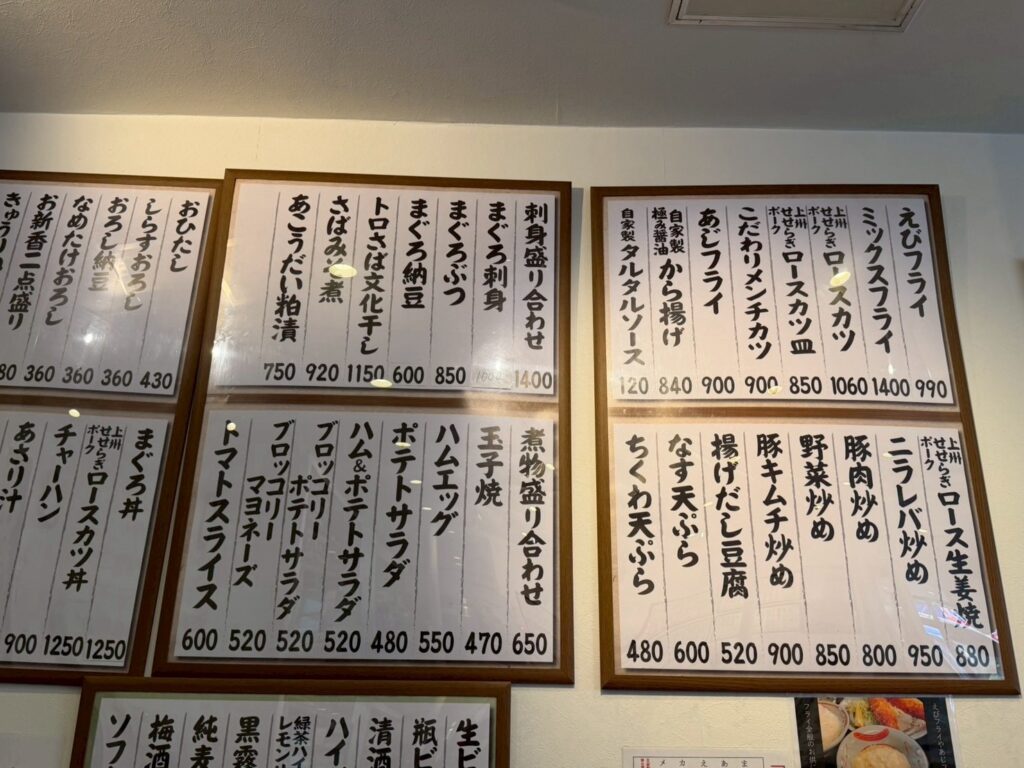 えびフライ 990
ミックスフライ 1400
上州せせらぎポークロースカツ 1060
上州せせらぎポークロースカツ皿 850
こだわりメンチカツ 900
あじフライ 900
自家製極み醤油から揚げ 840
自家製タルタルソース 120
上州せせらぎポークロース生姜焼 880
ニラレバ炒め 950
豚肉炒め 800
野菜炒め 850
豚キムチ炒め 900
揚げだし豆腐 520
なす天ぷら 600
ちくわ天ぷら 480
刺身盛り合わせ 1400
まぐろ刺身
まぐろぶつ 850
まぐろ納豆 600
トロさば文化干し 1150
さばみそ煮 920
あこうだい粕漬 750
煮物盛り合わせ 650
玉子焼 470
ハムエッグ 550
ポテトサラダ 480
ハム&ポテトサラダ 520
ブロッコリーポテトサラダ 520
ブロッコリーマヨネーズ 520
トマトスライス 600
おひたし 430
しらすおろし 360
おろし納豆 360
なめたけおろし 360
お新香二点盛り 80
きゅうり
まぐろ丼 1250
上州せせらぎポークロースカツ丼 1250
チャーハン 900
あさり汁
生ビ
瓶ビ
清酒
ハイ
緑茶ハイ
レモン
黒霧
純麦
梅酒
ソフ
えびフライやあじ
フライ全般のお供
メカえあま